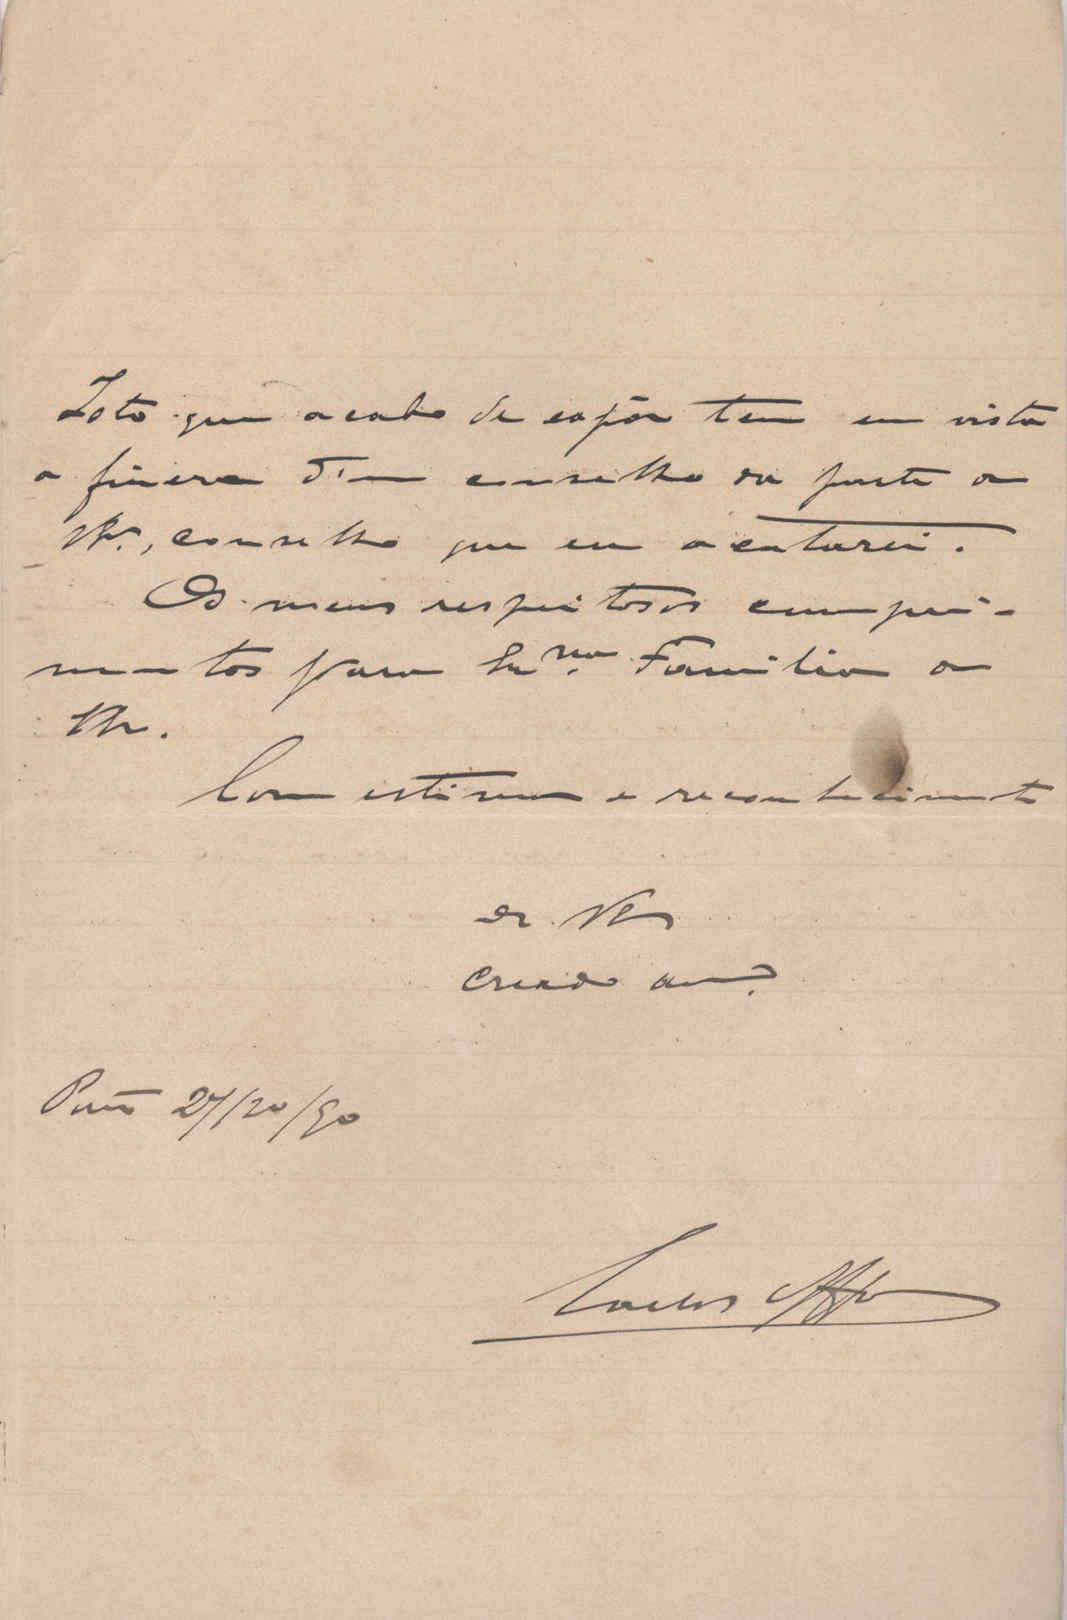 Isto que acabo de expôr tem em vista
a fineza d'um conselho da parte de
VEx., conselho que eu acatarei.
Os meus respeitosos cumpri-
mentos para Exma. Familia de
VEx.
Com estima e reconhecimento
de VEx
Creado am.
27/10/90
Carlos Affo